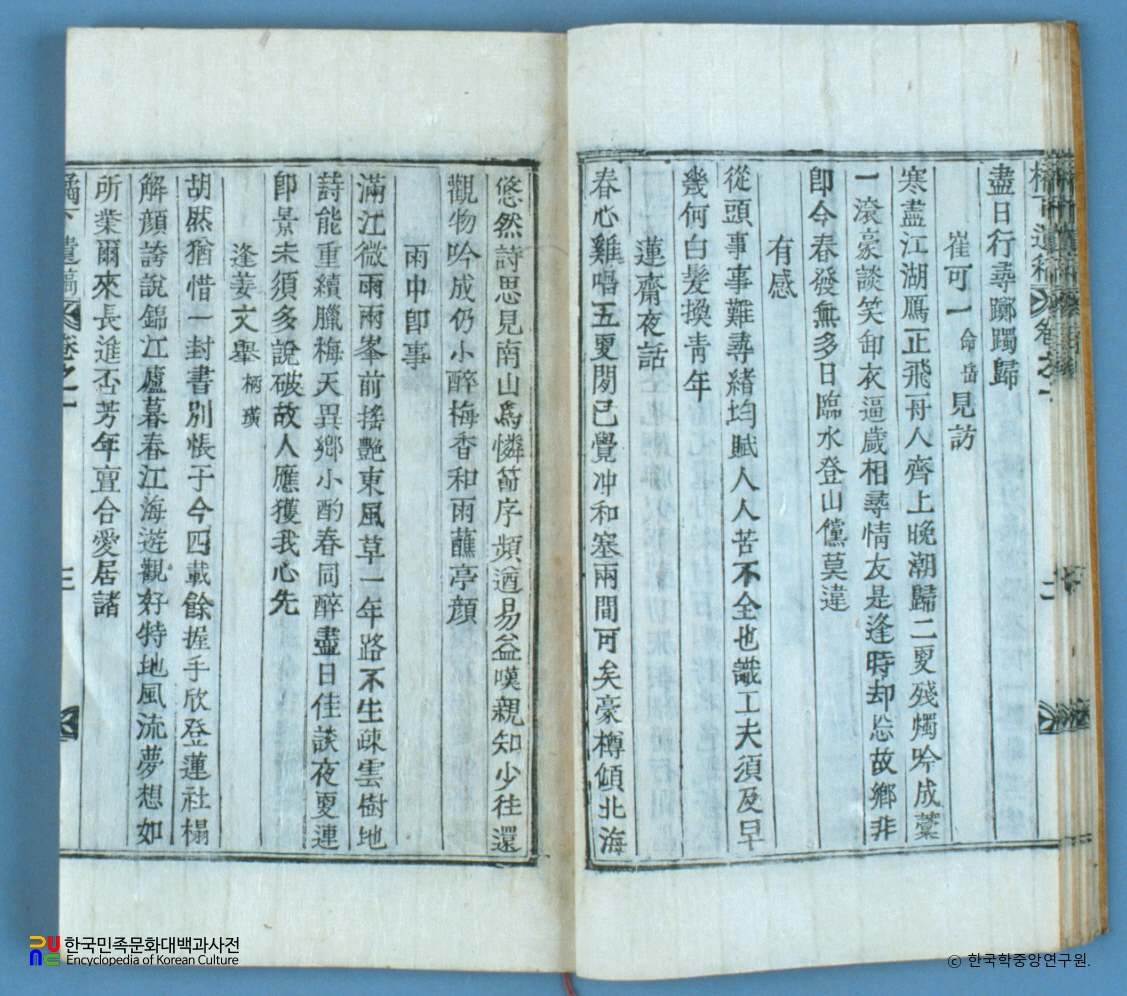 盡日行尋躑躅歸
崔可一命岳見訪
寒盡江湖鴈正飛一舟人齊上晚潮歸二更殘燭吟成藁
一滾豪談笑卸衣逼歲相尋情友是逢時却忘故鄉非
卽今春發無多日臨水登山儻莫違
有感
從頭事事難尋緖均賦人人苦不全也識工夫須及早
幾何白髮換靑年
蓮齋夜話
春心雞唱五更閔已覺冲和塞兩間可矣豪樽傾北海
悠然詩思見南山爲憐節序頻遒易益嘆親知少往還
觀物吟成仍小醉梅香和雨蘸亭顔
雨中卽事
滿江微雨兩峯前搖艶東風草一年路不生疎雲樹地
詩能重續臘梅天異鄉小酌春同醉盡日佳談夜更連
卽景未須多說破故人應獲我心先
逢姜文擧柄璜
胡然猶惜一封書別悵于今四載餘握手欣登蓮社榻
解顔誇說錦江廬暮春江海遊觀好特地風流夢想如
所業爾來長進否芳年亶合愛居諸
遺稿 卷之一 三
한국민족문화대백과사전
Encyclopedia of Korean Culture
© 한국학중앙연구원.